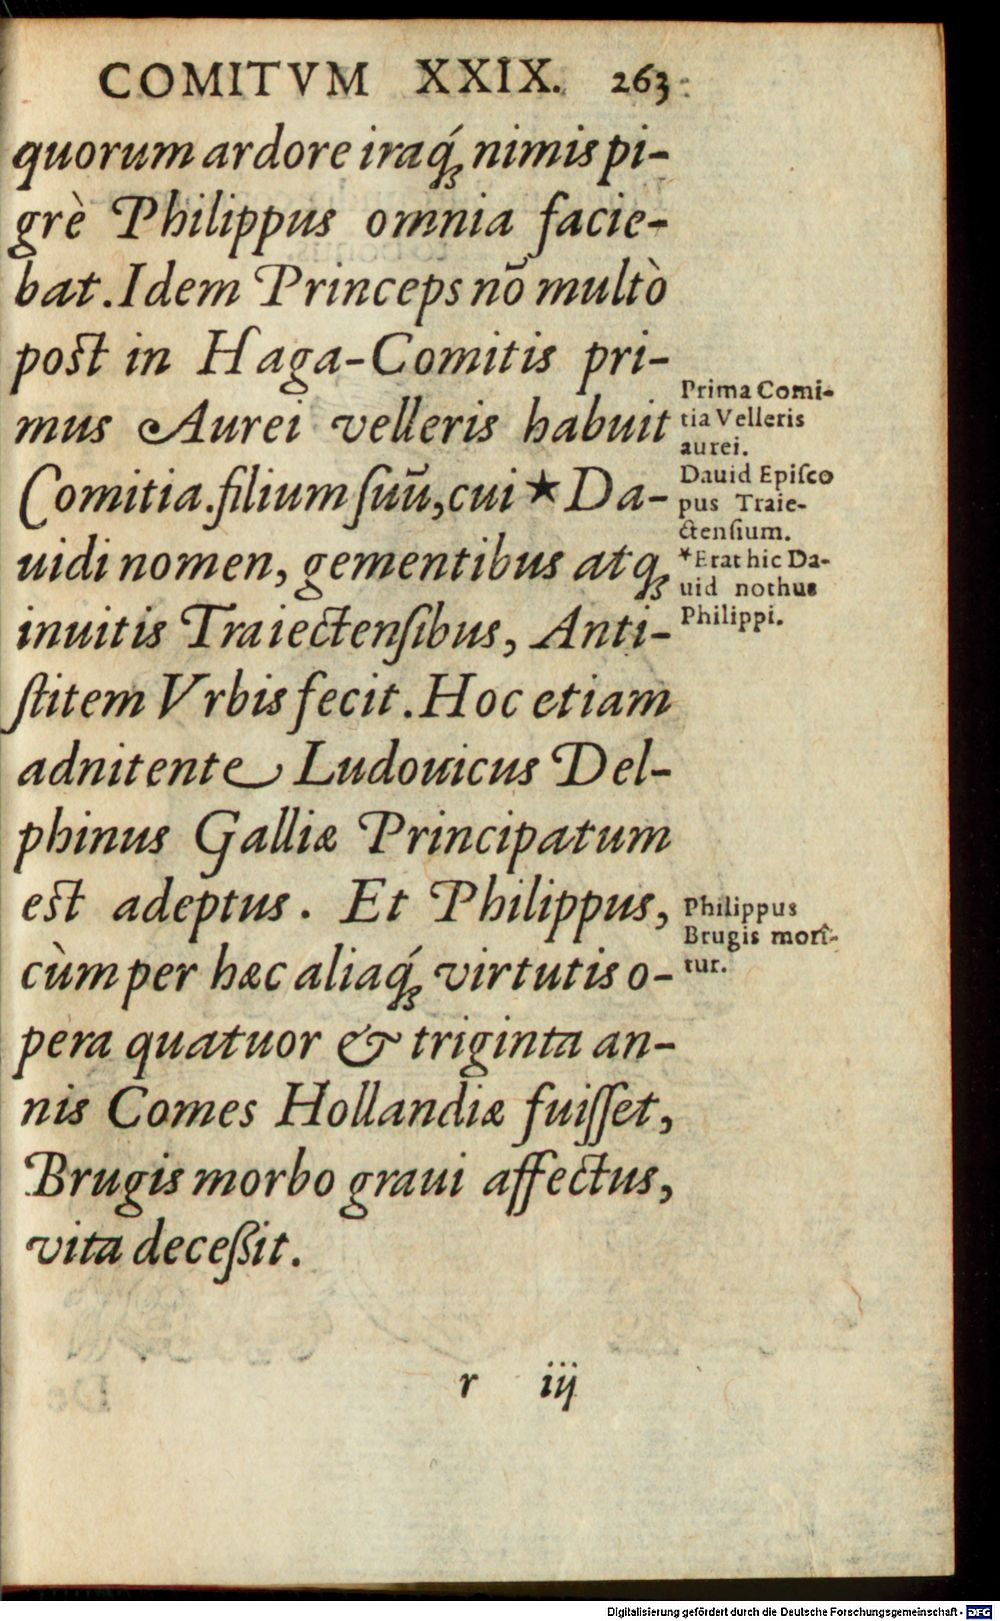 COMITVM XXIX. 263
quorum ardore iraq́; nimis pi-
grè Philippus omnia facie-
bat. Idem Princeps nō multò
post in Haga-Comitis pri-
mus Aurei velleris habuit
Comitia. filium ſuū, cui ★ Da-
uidi nomen, gementibus atq;
inuitis Traiectenſibus, Anti-
ſtitem Vrbis fecit. Hoc etiam
adnitente Ludouicus Del-
phinus Galliæ Principatum
est adeptus. Et Philippus,
cùm per hæc aliaq́; virtutis o-
pera quatuor & triginta an-
nis Comes Hollandiæ fuiſſet,
Brugis morbo graui affectus,
vita deceſsit.
Prima Comi-
tia Velleris
aurei.
Dauid Epiſco
pus Traie-
ctenſium.
*Erat hic Da-
uid nothus
Philippi.
Philippus
Brugis mori-
tur.
r iij
Digitalisierung gefördert durch die Deutsche Forschungsgemeinschaft - DFG